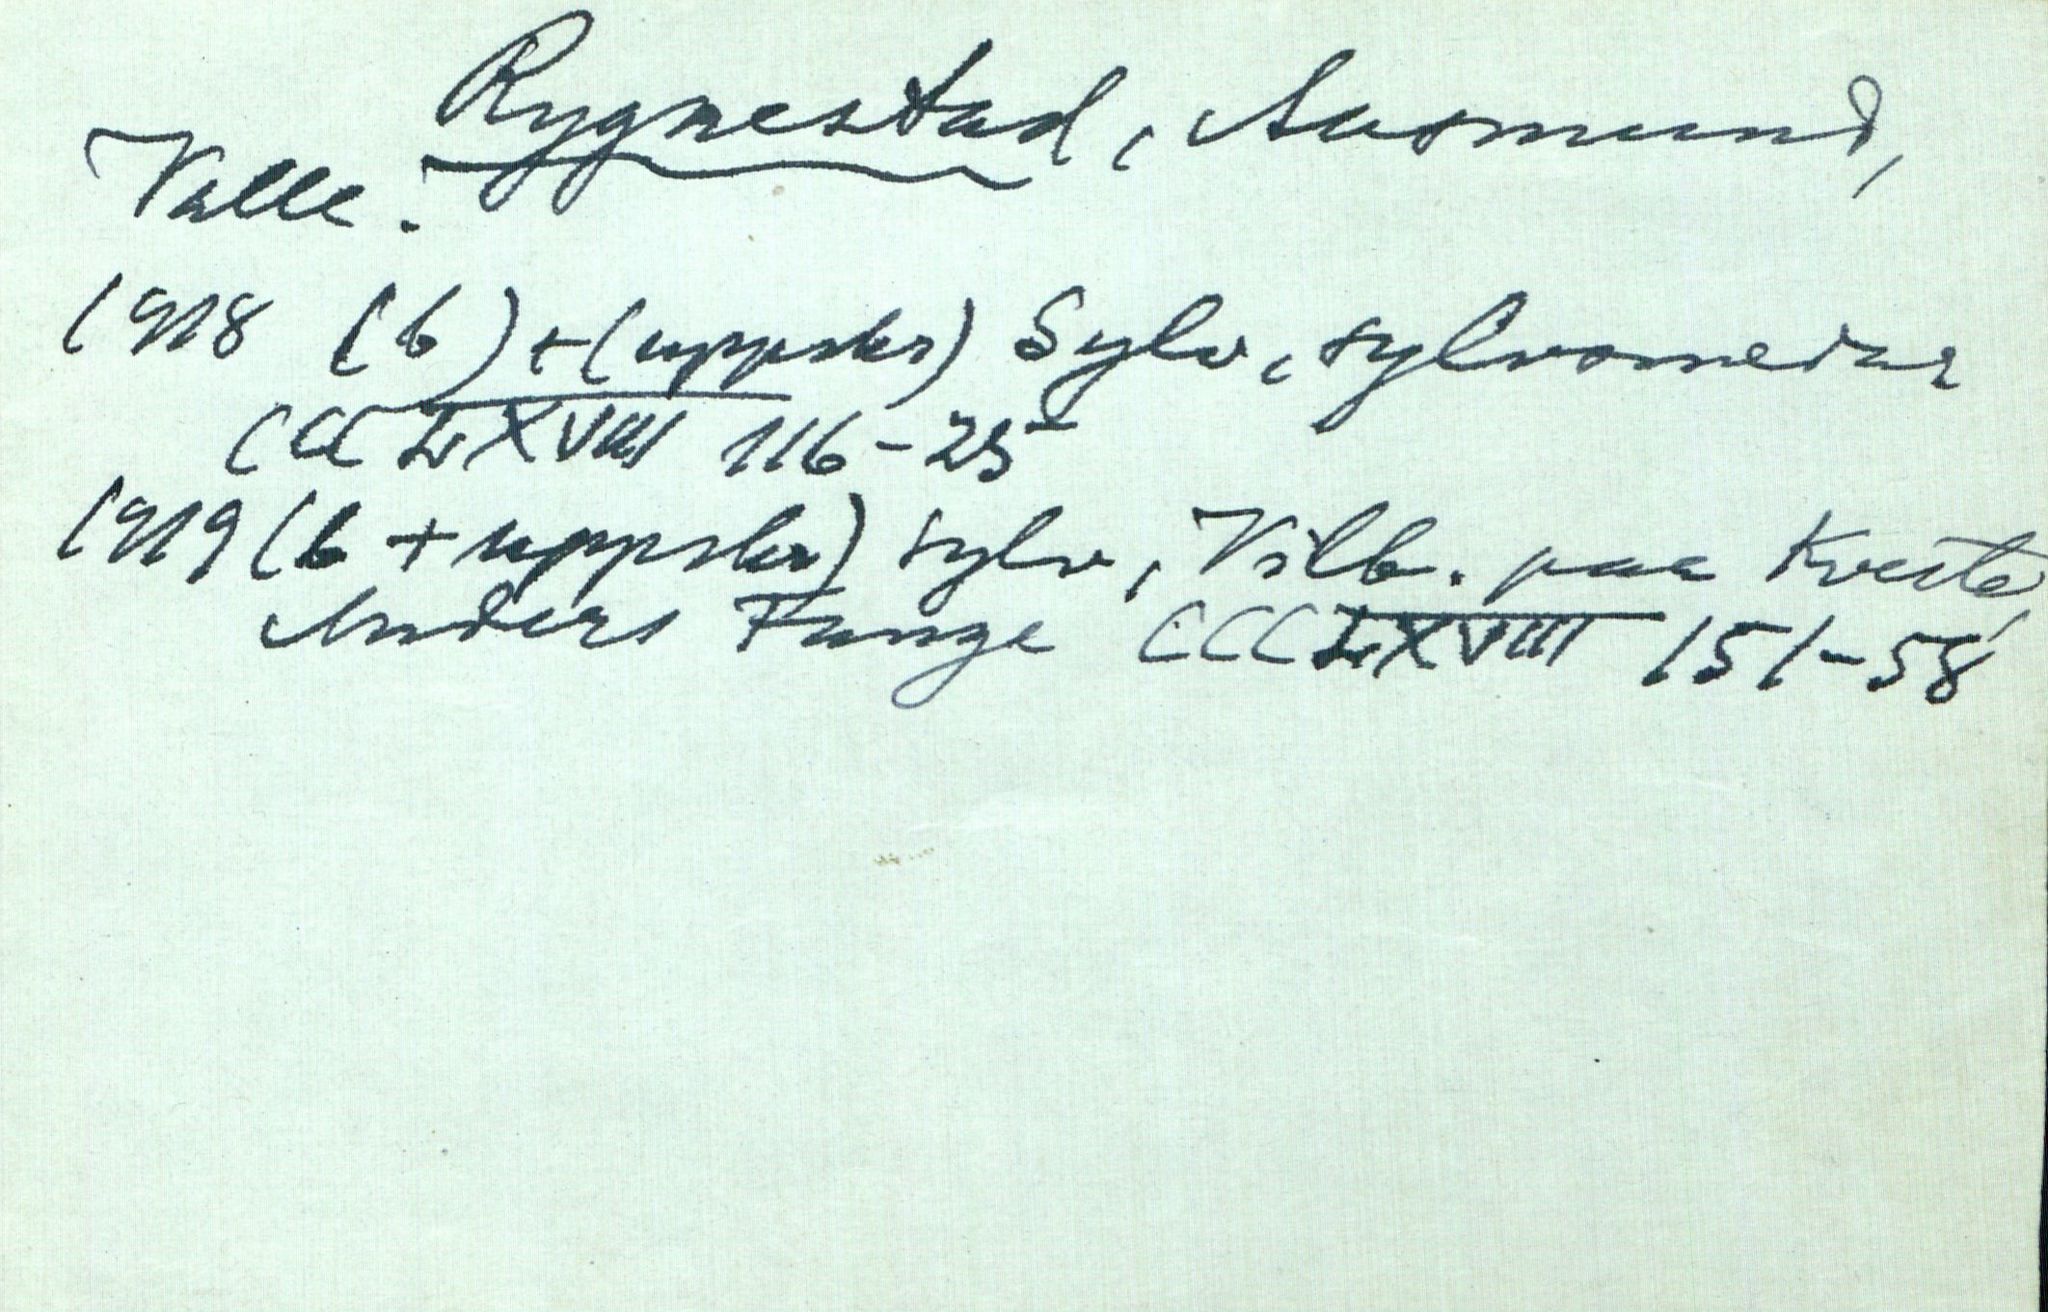 Rygnestad, Aasmund,
Valle.
1918 (b) + (uppskr) Sylv, sylvsmedar
CCCLXVIII 116-25
1919 (b + uppskr) sylv, Vilb. paa Kveste,
Anders Fange CCCLXVIII 151-58